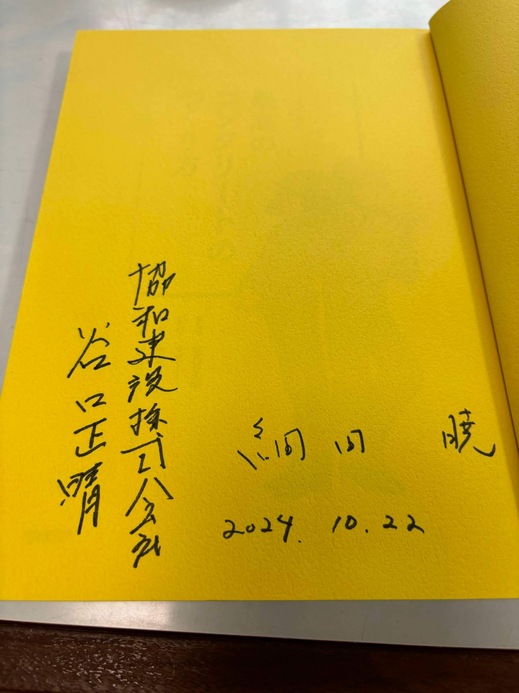 協和建設株式会社
谷口正晴
細田 暁
2024. 10.22